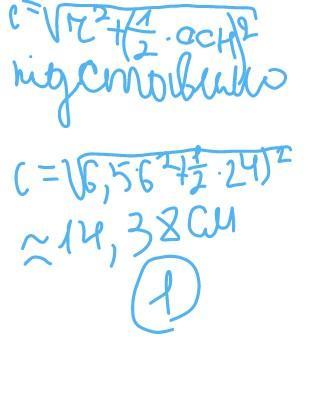 c=√r²+(1/2·осн)²
підставимо
c=√6,56²+1/2·24)²
≈14,38см
1